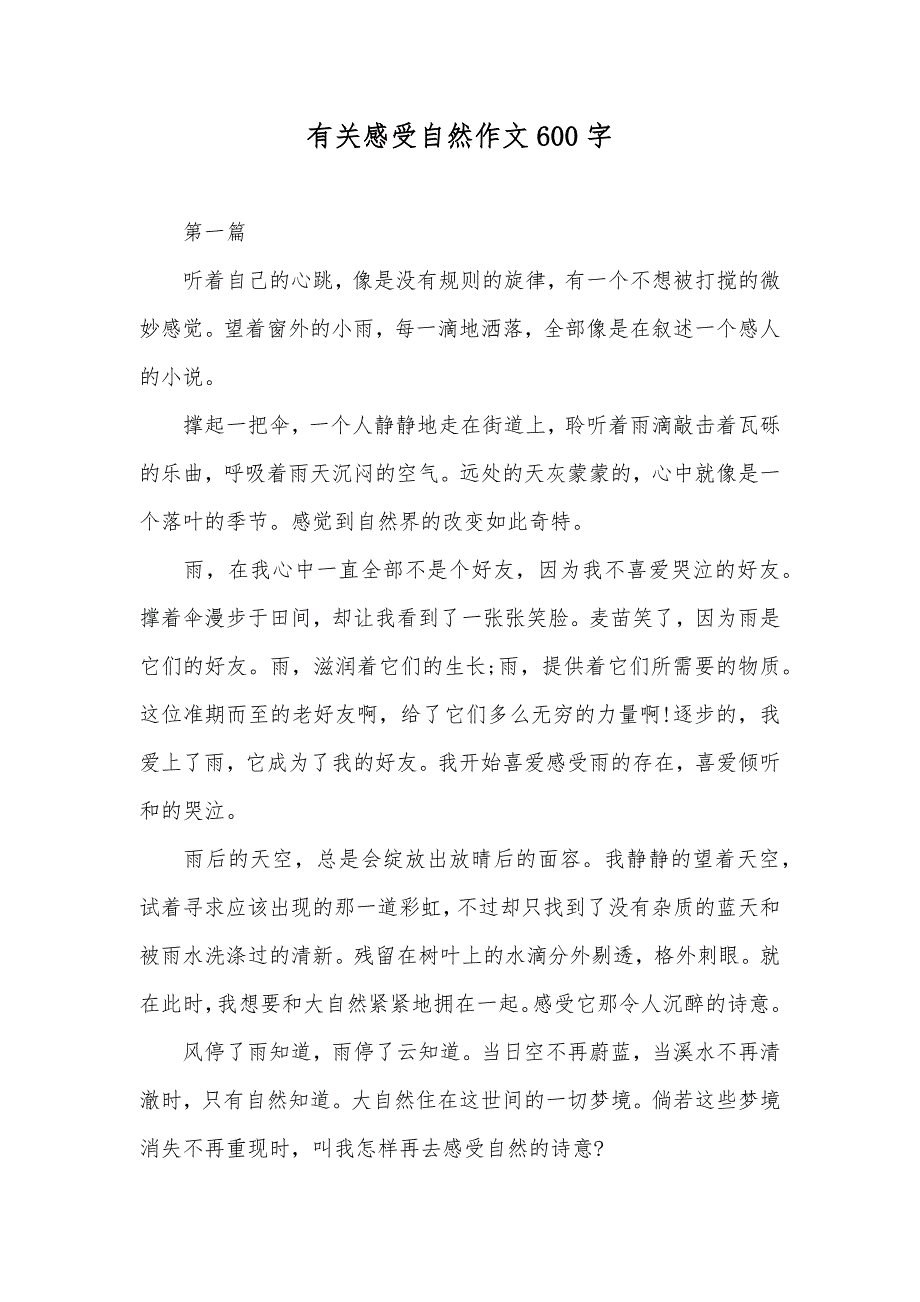 有关感受自然作文600字
第一篇
听着自己的心跳，像是没有规则的旋律，有一个不想被打搅的微
妙感觉。望着窗外的小雨，每一滴地洒落，全部像是在叙述一个感人
的小说。
撑起一把伞，一个人静静地走在街道上，聆听着雨滴敲击着瓦砾
的乐曲，呼吸着雨天沉闷的空气。远处的天灰蒙蒙的，心中就像是一
个落叶的季节。感觉到自然界的改变如此奇特。
雨，在我心中一直全部不是个好友，因为我不喜爱哭泣的好友。
撑着伞漫步于田间，却让我看到了一张张笑脸。麦苗笑了，因为雨是
它们的好友。雨，滋润着它们的生长;雨，提供着它们所需要的物质。
这位准期而至的老好友啊，给了它们多么无穷的力量啊!逐步的，我
爱上了雨，它成为了我的好友。我开始喜爱感受雨的存在，喜爱倾听
和的哭泣。
雨后的天空，总是会绽放出放晴后的面容。我静静的望着天空，
试着寻求应该出现的那一道彩虹，不过却只找到了没有杂质的蓝天和
被雨水洗涤过的清新。残留在树叶上的水滴分外剔透，格外刺眼。就
在此时，我想要和大自然紧紧地拥在一起。感受它那令人沉醉的诗意。
风停了雨知道，雨停了云知道。当日空不再蔚蓝，当溪水不再清
澈时，只有自然知道。大自然住在这世间的一切梦境。倘若这些梦境
消失不再重现时，叫我怎样再去感受自然的诗意?